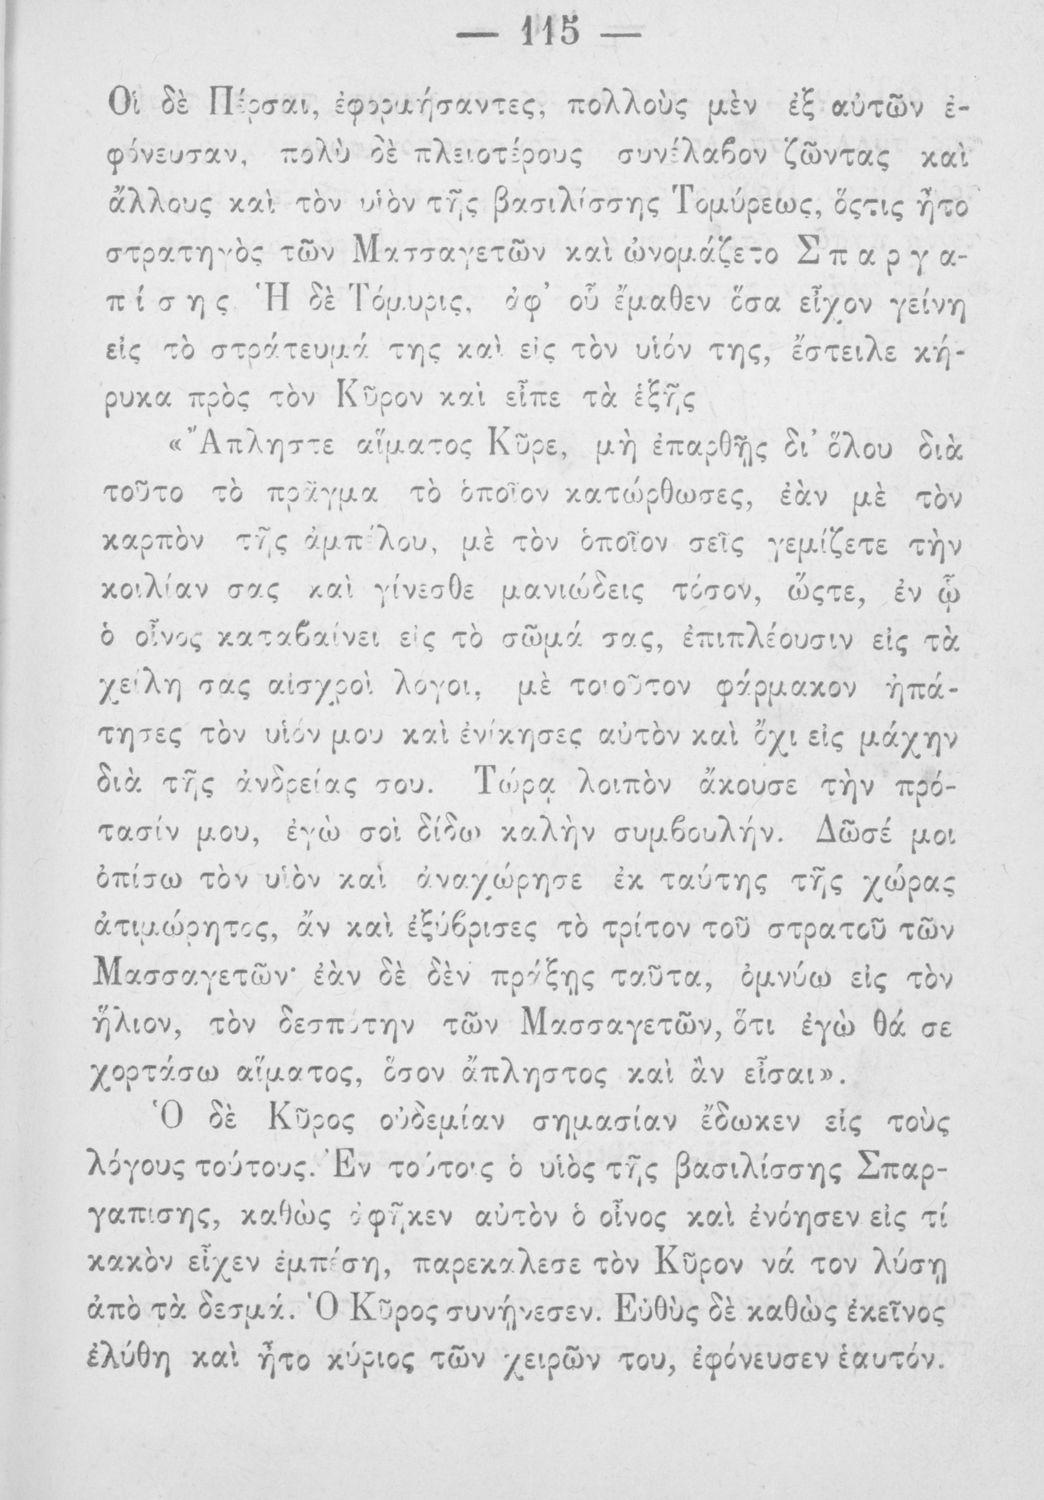 — 115 —
Οἱ δὲ Πέρσαι, ἐφορμήσαντες, πολλοὺς μὲν ἐξ αὐτῶν ἐ-
φόνευσαν, πολὺ δὲ πλειοτέρους συνέλαβον ζῶντας καὶ
ἄλλους καὶ τὸν υἱὸν τῆς βασιλίσσης Τομύρεως, ὅςτις ἦτο
στρατηγὸς τῶν Μασσαγετῶν καὶ ὠνομάζετο Σ π α ρ γ α-
π ί σ η ς Ἡ δὲ Τόμυρις, ἀφ’ οὗ ἔμαθεν ὅσα εἶχον γείνη
εἰς τὸ στράτευμά της καὶ εἰς τὸν υἱόν της, ἔστειλε κή-
ρυκα πρὸς τὸν Κῦρον καὶ εἶπε τὰ ἑξῆς
«Ἄπληστε αἵματος Κῦρε, μὴ ἐπαρθῇς δι’ ὅλου διὰ
τοῦτο τὸ πρᾶγμα τὸ ὁποῖον κατώρθωσες, ἐὰν μὲ τὸν
καρπὸν τῆς ἀμπέλου, μὲ τὸν ὁποῖον σεῖς γεμίζετε τὴν
κοιλίαν σας καὶ γίνεσθε μανιώδεις τόσον, ὥςτε, ἐν ᾧ
ὁ οἶνος καταβαίνει εἰς τὸ σῶμά σας, ἐπιπλέουσιν εἰς τὰ
χείλη σας αἰσχροὶ λογοι, μὲ τοιοῦτον φάρμακον ἠπά-
τησες τὸν υἱόν μου καὶ ἐνίκησες αὐτὸν καὶ ὄχι εἰς μάχην
διὰ τῆς ἀνδρείας σου. Τώρα λοιπὸν ἄκουσε τὴν πρό-
τασίν μου, ἐγὼ σοὶ δίδω καλὴν συμβουλήν. Δῶσέ μοι
ὀπίσω τὸν υἱὸν καὶ ἀναχώρησε ἐκ ταύτης τῆς χώρας
ἀτιμώρητος, ἄν καὶ ἐξύβρισες τὸ τρίτον τοῦ στρατοῦ τῶν
Μασσαγετῶν· ἐὰν δὲ δὲν πράξῃς ταῦτα, ὀμνύω εἰς τὸν
ἥλιον, τὸν δεσπότην τῶν Μασσαγετῶν, ὅτι ἐγὼ θά σε
χορτάσω αἵματος, ὅσον ἄπληστος καὶ ἂν εἶσαι».
Ὁ δὲ Κῦρος οὐδεμίαν σημασίαν ἔδωκεν εἰς τοὺς
λόγους τούτους. Ἐν τούτοις ὁ υἱὸς τῆς βασιλίσσης Σπαρ-
γαπισης, καθὼς ἀφῆκεν αὐτὸν ὁ οἶνος καὶ ἐνόησεν εἰς τί
κακὸν εἶχεν ἐμπέση, παρεκαλεσε τὸν Κῦρον νά τον λύσῃ
ἀπὸ τὰ δεσμά. Ὁ Κῦρος συνῄνεσεν. Εὐθὺς δὲ καθὼς ἐκεῖνος
ἐλύθη καὶ ἦτο κύριος τῶν χειρῶν του, ἐφόνευσεν ἑαυτόν.